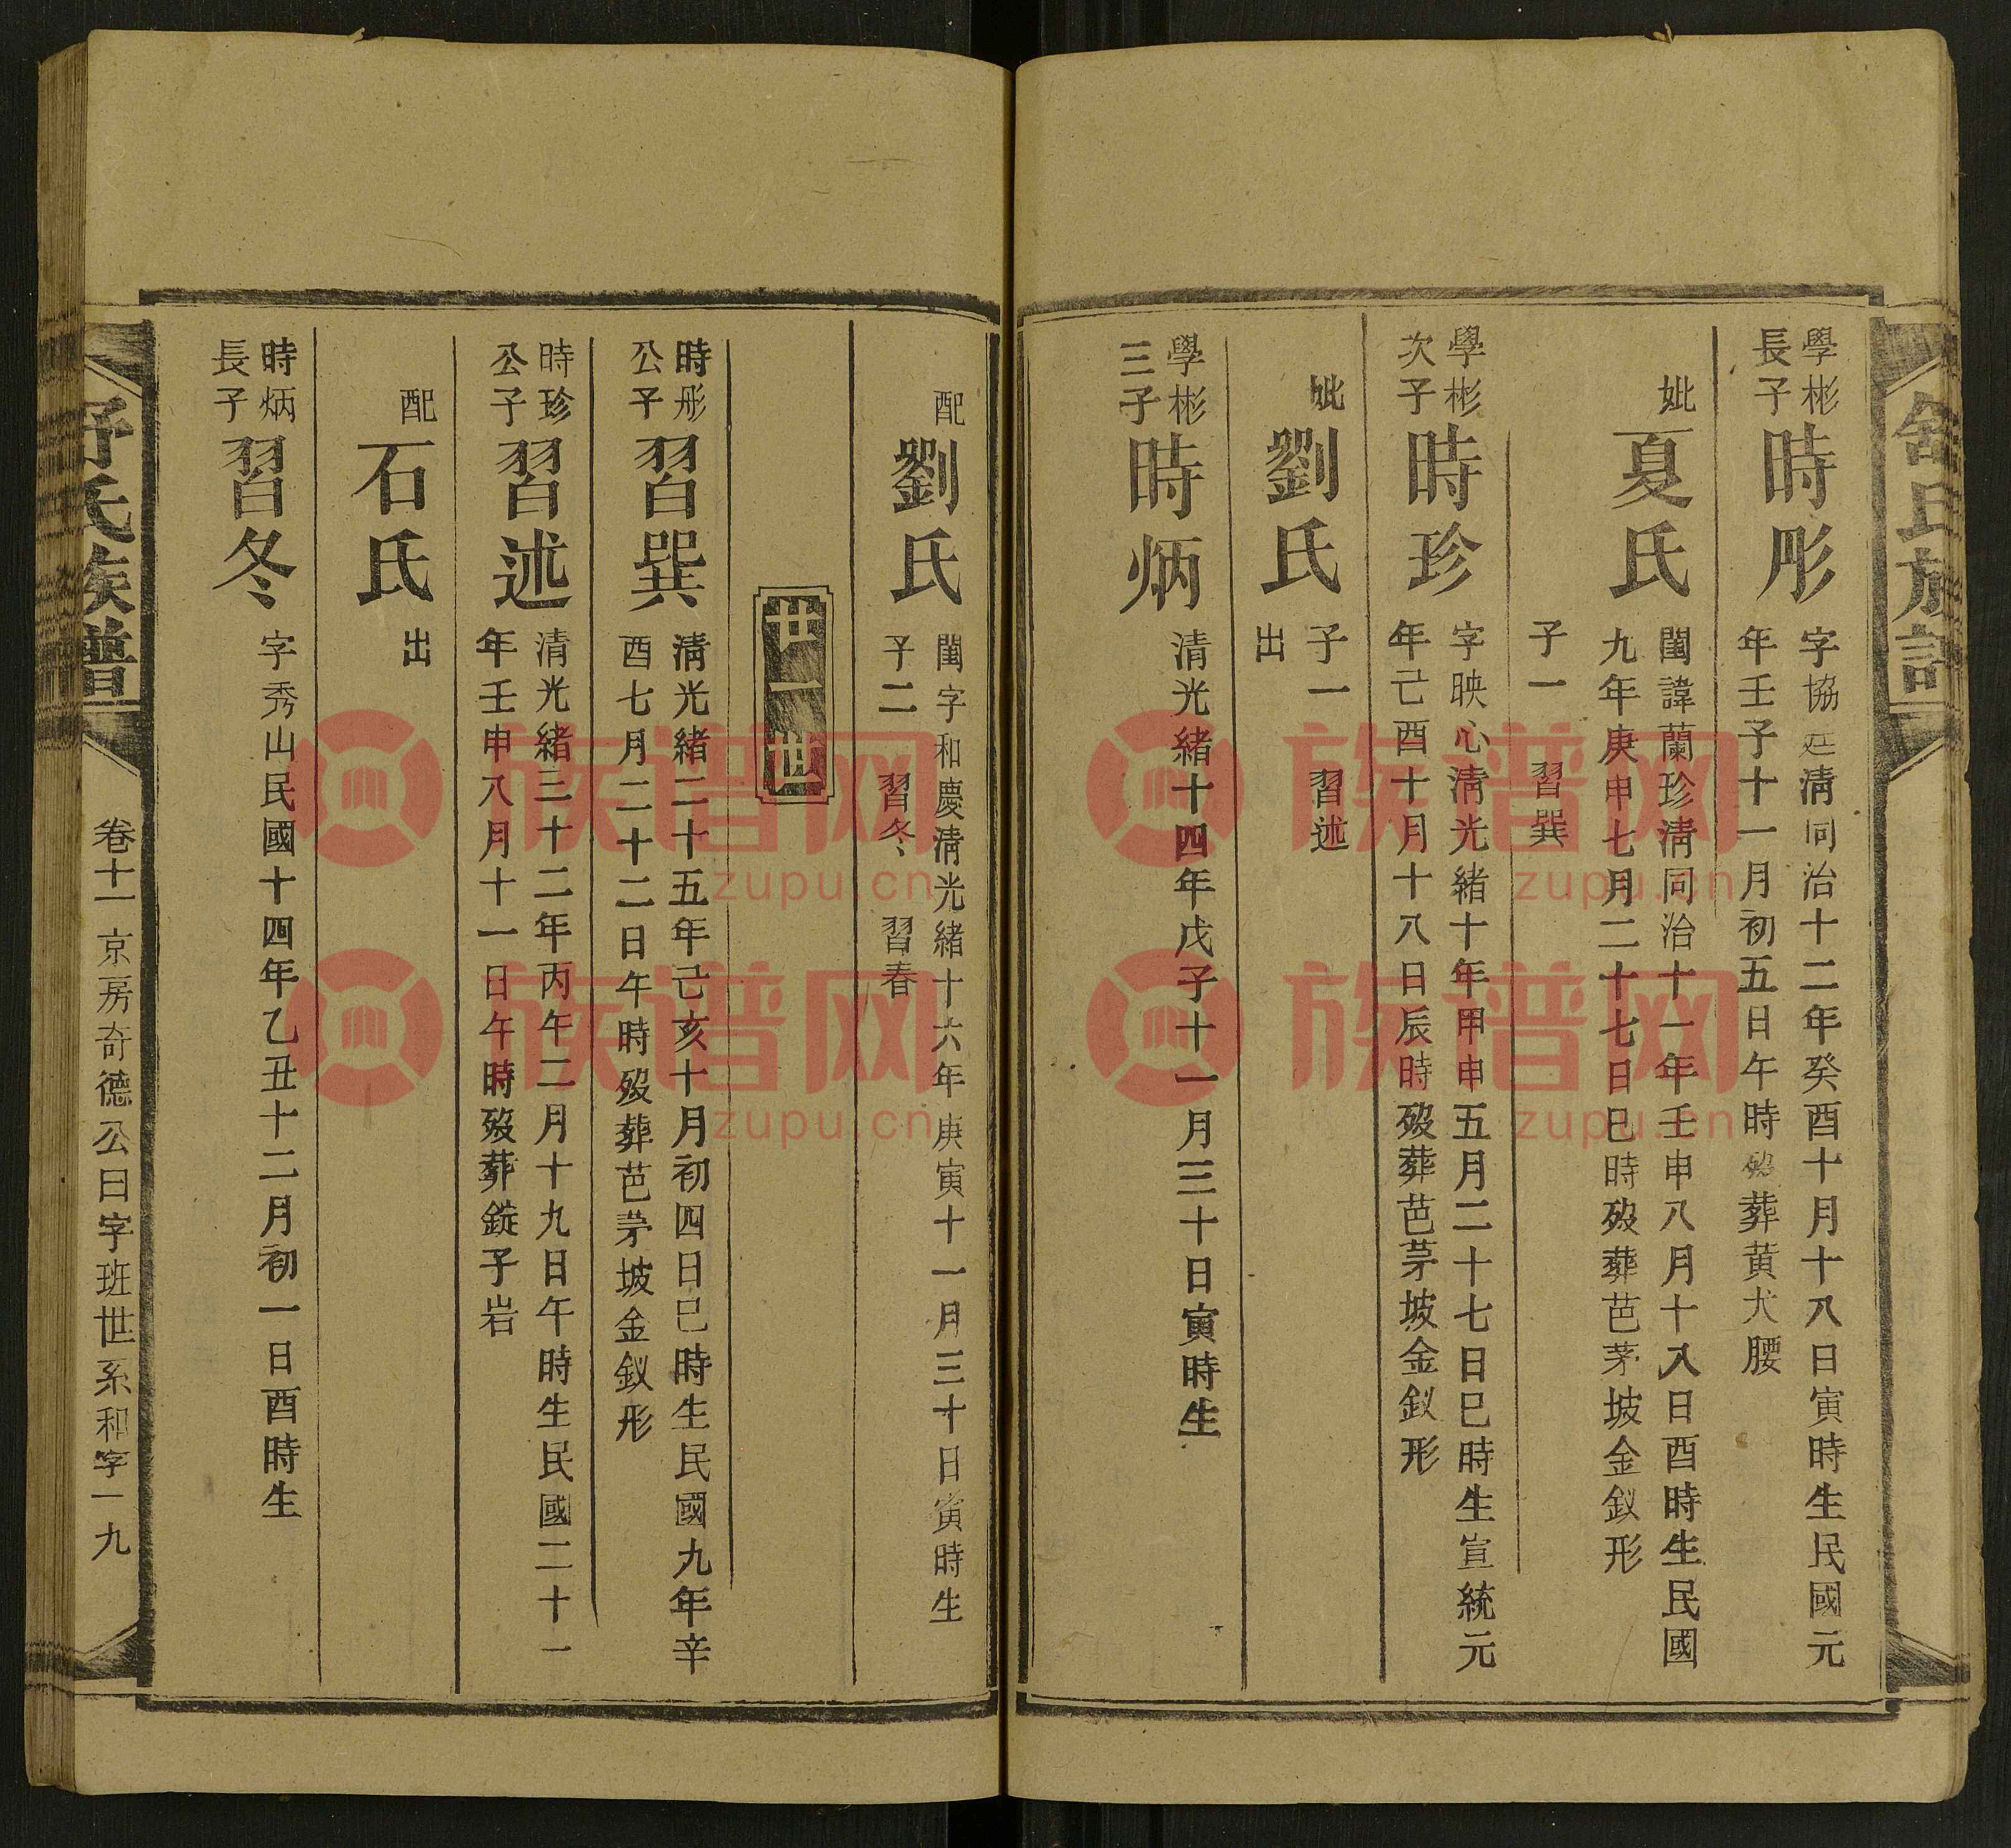 舒氏族譜
學彬
長子
時彤
字協廷清同治十二年癸酉十月十八日寅時生民國元
年壬子十一月初五日午時歿葬黄犬腰
妣
夏氏
閨諱蘭珍清同治十一年壬申八月十八日酉時生民國
九年庚申七月二十七日巳時歿葬芭茅坡金釵形
子一 習巽
學彬
次子
時珍
字映心清光緒十年甲申五月二十七日巳時生宣統元
年己酉十月十八日辰時歿葬芭茅坡金釵形
妣
劉氏
子一 習述
出
學彬
三子
時炳
清光緒十四年戊子十一月三十日寅時生
配
劉氏
閨字和慶清光緒十六年庚寅十一月三十日寅時生
子二 習冬 習春
廿一世
時彤
公子
習巽
清光緒二十五年己亥十月初四日巳時生民國九年辛
酉七月二十二日午時歿葬芭茅坡金釵形
時珍
公子
習述
清光緒三十二年丙午二月十九日午時生民國二十一
年壬申八月十一日午時歿葬錠子岩
配
石氏
出
時炳
長子
習冬
字秀山民國十四年乙丑十二月初一日酉時生
舒氏族譜
卷十一 京房奇德公曰字班世系和字一九
族谱网
zupu.cn
族谱网
zupu.cn
族谱网
zupu.cn
族谱网
zupu.cn